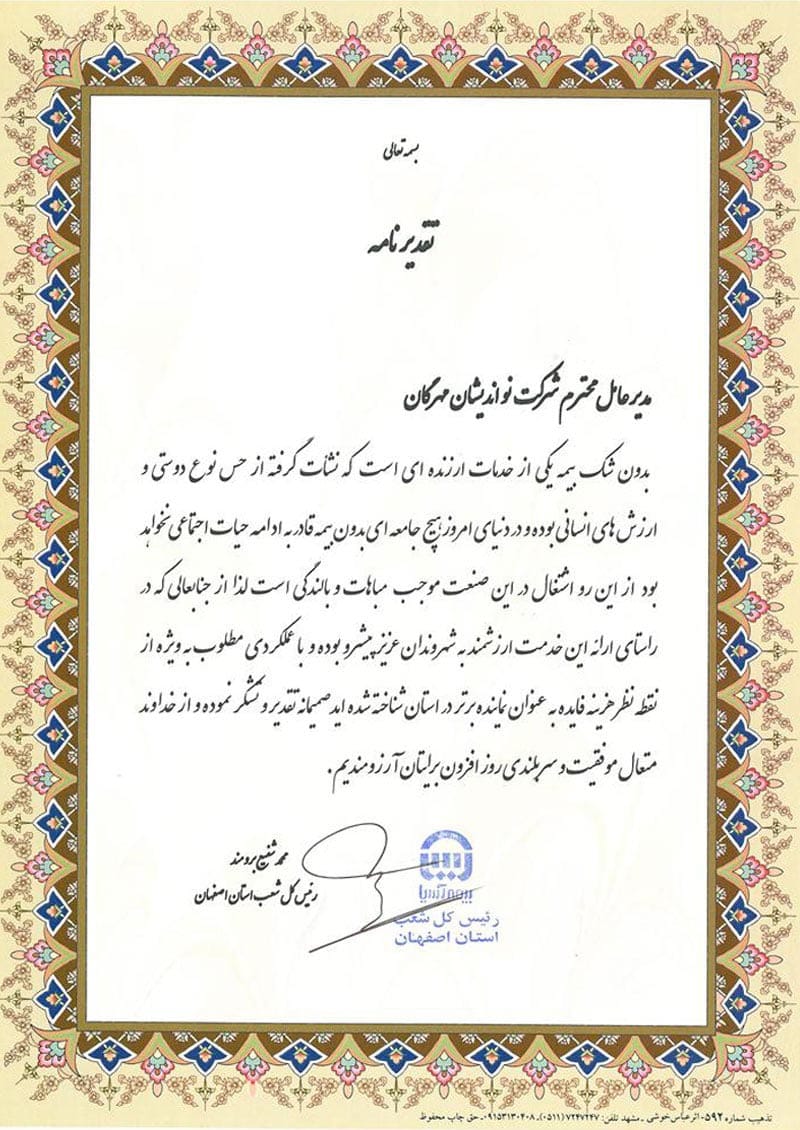 بسمه تعالی
تقدیرنامه
مدیرعامل محترم شرکت نواندیشان مهرگان
بدون شک بیمه یکی از خدمات ارزنده ای است که نشأت گرفته از حس نوع دوستی و
ارزش های انسانی بوده و در دنیای امروز هیچ جامعه ای بدون بیمه قادر به ادامه حیات اجتماعی نخواهد
بود از این رو اشتغال در این صنعت موجب مباهات و بالندگی است لذا از جنابعالی که در
راستای ارائه این خدمت ارزشمند به شهروندان عزیز پیشرو بوده و با عملکردی مطلوب به ویژه از
نقطه نظر هزینه فایده به عنوان نماینده برتر در استان شناخته شده اید صمیمانه تقدیر و تشکر نموده و از خداوند
متعال موفقیت و سربلندی روز افزون برایتان آرزومندیم.
محمد شفیع برومند
رئیس کل شعب استان اصفهان
بیمه آسیا
رئیس کل شعب
استان اصفهان
تذهیب شماره ۵۹۲-اثر عباس خوشی - مشهد تلفن: ۷۲۴۷۲۴۷(۰۵۱۱)-۰۹۱۵۳۱۳۰۴۰۸-حق چاپ محفوظ